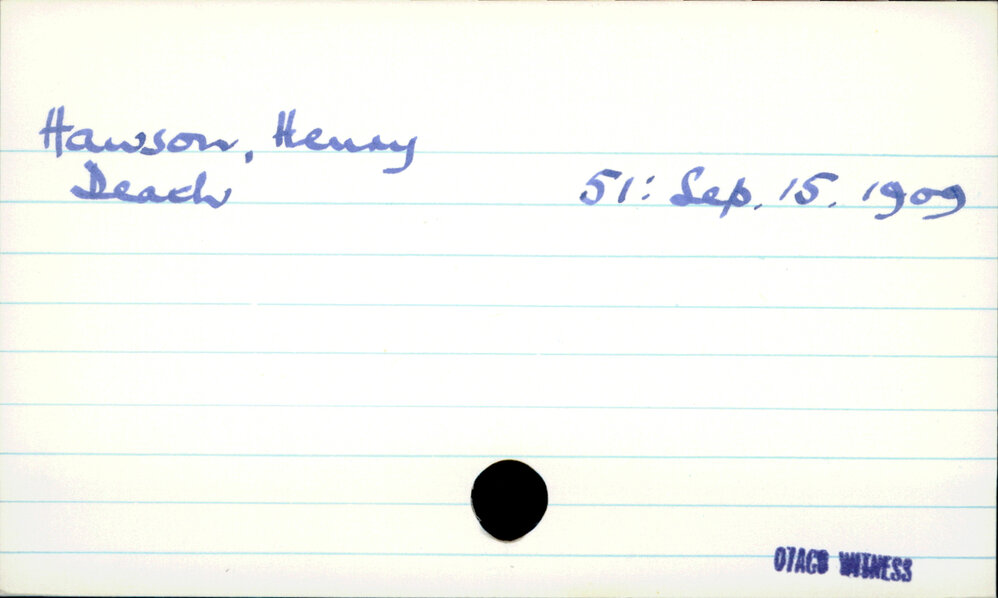 Hawson, Henry
Death 51: Sep. 15. 1909
OTAGO WITNESS